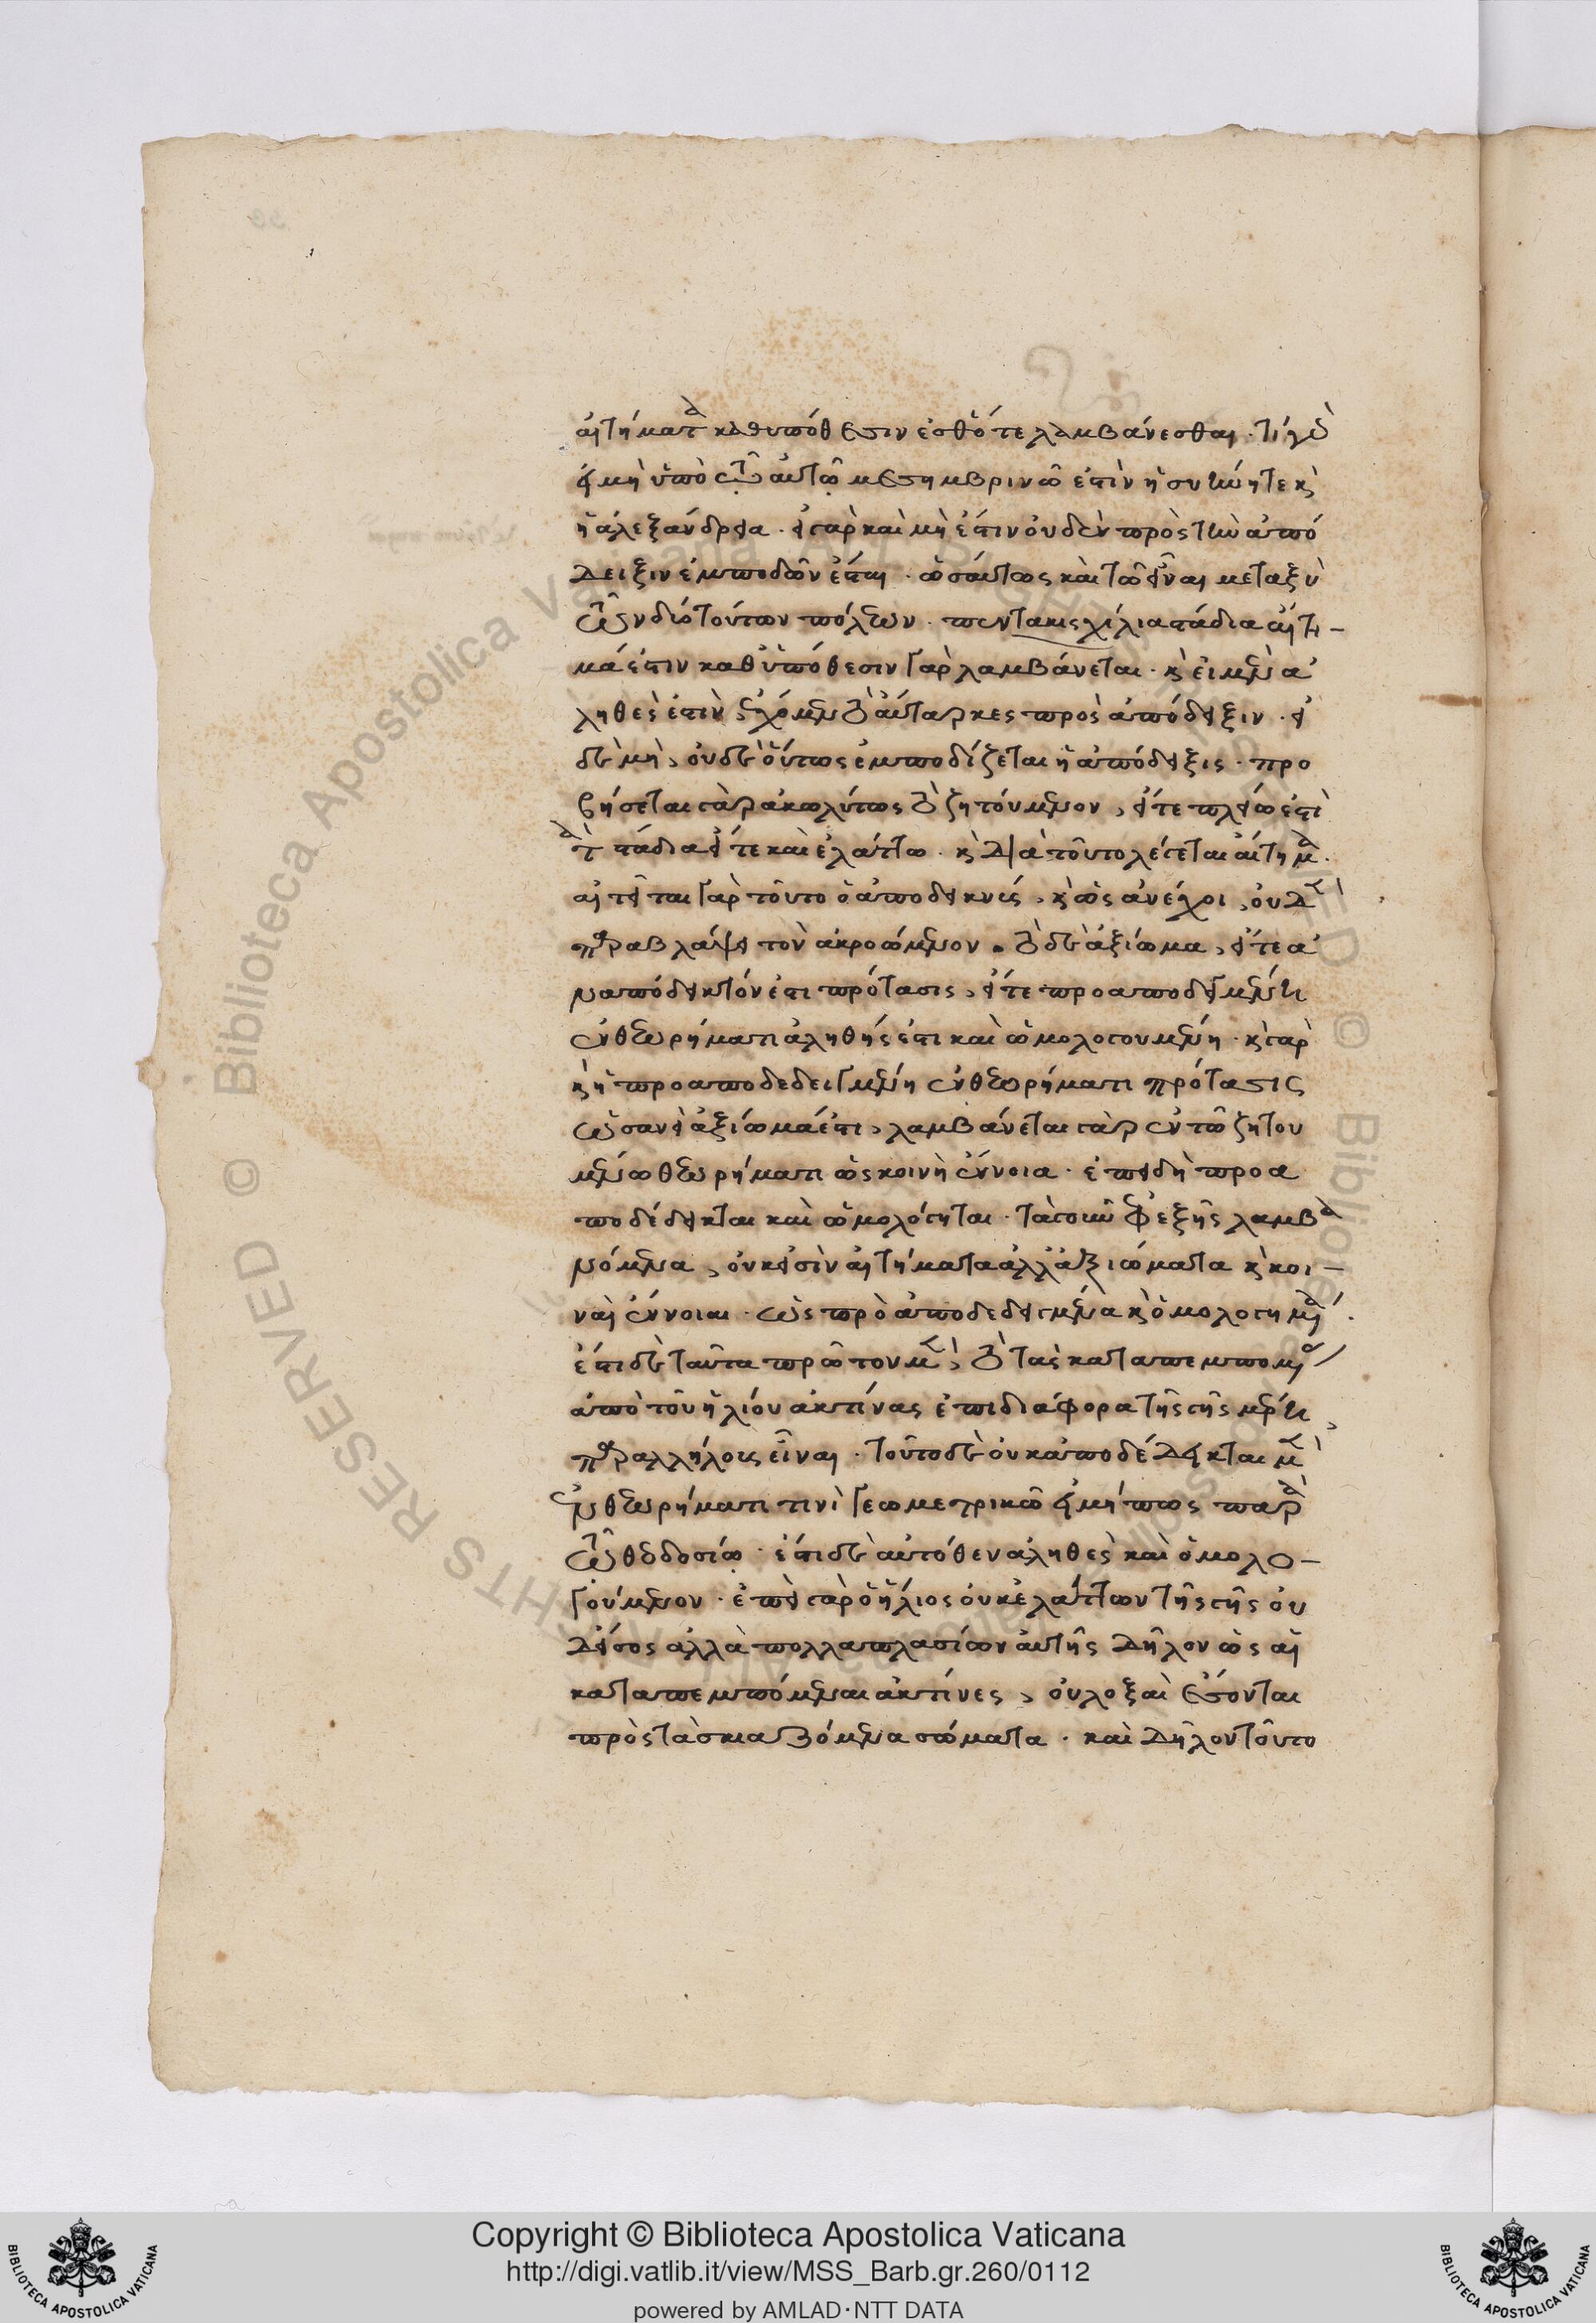 αἰτήματα καθυπόθεσιν ἐσθότε λαμβάνεσθαι. τί γὰρ
εἰ μὴ ὑπὸ τῶ αὐτῶ μεσημβρινῶ ἐστὶν ἡ συήνη τε καὶ
ἡ ἀλεξάνδρεια. εἰ γὰρ καὶ μὴ ἔστιν οὐδὲν πρὸς τὴν ἀπό
δειξιν ἐμποδὼν ἔσται. ὡσαύτως καὶ τῶ εἶναι μεταξὺ
τῶν δύο τούτων πόλεων. πεντακισχίλια στάδια αἴτη-
μά ἐστιν καθ' ὑπόθεσιν γὰρ λαμβάνεται. καὶ εἰ μὲν ἀ
ληθές ἐστιν, ἔχομεν τὸ αὔταρκες πρὸς ἀπόδειξιν. εἰ
δὲ μὴ, οὐδὲ οὕτως ἐμποδίζεται ἡ ἀπόδειξις. προ
βήσεται γὰρ ἀκωλύτως τὸ ζητούμενον, εἴτε πλείω ἐστὶ
τὰ στάδια εἴτε καὶ ἐλάττω. καὶ διὰ τοῦτο λέγεται αἴτημα.
αἰτεῖται γὰρ τοῦτο ὁ ἀποδεικνὺς, καὶ ὡς ἂν ἔχοι, οὐδὲν
παραβλάψει τὸν ἀκροώμενον. τὸ δὲ ἀξίωμα, εἴτε ἀ
ναπόδεικτόν ἐστι πρότασις, εἴτε προαποδεδειγμένη
ἐν θεωρήματι ἀληθής ἐστι καὶ ὡμολογουμένη. καὶ γὰρ
καὶ ἡ προαποδεδειγμένη ἐν θεωρήματι πρότασις
ὡσανεὶ ἀξίωμά ἐστι, λαμβάνεται γὰρ ἐν τῶ ζητου
μένω θεωρήματι ὡς κοινὴ ἔννοια. ἐπειδὴ προα
ποδέδεικται καὶ ὡμολόγηται. τὰ γοῦν ἐφεξῆς λαμβα
νόμενα, οὐκ εἰσὶν αἰτήματα ἀλλ' ἀξιώματα καὶ κοι-
ναὶ ἔννοιαι. ὡς προαποδεδειγμένα καὶ ὁμολογημένα.
ἔστι δὲ ταῦτα πρῶτον μὲν, τὸ τὰς καταπεμπομένας
ἀπὸ τοῦ ἡλίου ἀκτίνας ἐπὶ διάφορα τῆς γῆς μέρη
παραλλήλους εἶναι. τοῦτο δὲ οὐκ ἀποδέδεικται μὲν
ἐν θεωρήματι τινὶ γεωμετρικῶ εἰ μή πως παρὰ
τῶ θεοδοσίω. ἔστι δὲ αὐτόθεν ἀληθὲς καὶ ὁμολο-
γούμενον. ἐπεὶ γὰρ ὁ ἥλιος οὐκ ἐλάττων τῆς γῆς οὐ
δ' ἴσος ἀλλὰ πολλαπλασίων αὐτῆς δῆλον ὡς αἱ
καταπεμπόμεναι ἀκτίνες, οὐ λοξαὶ ἔσονται
πρὸς τὰ σκιαζόμενα σώματα. καὶ δῆλον τοῦτο
Copyright © Biblioteca Apostolica Vaticana
http://digi.vatlib.it/view/MSS_Barb.gr.260/0112
powered by AMLAD·NTT DATA